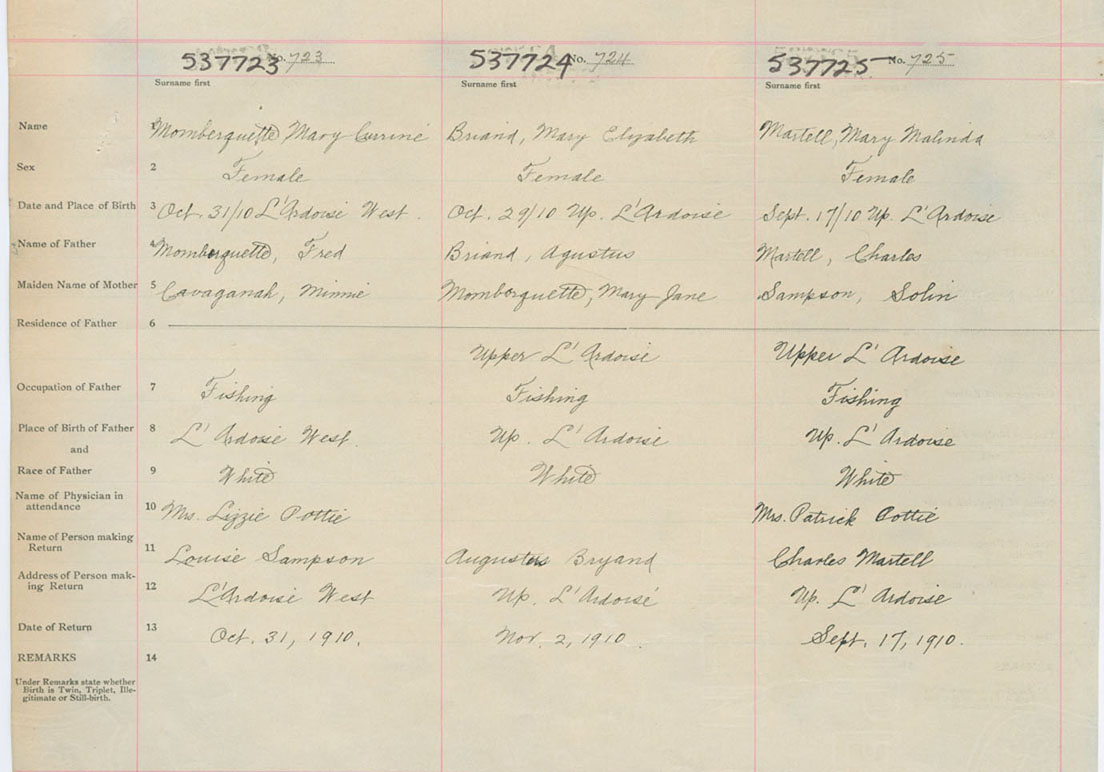 537723 No. 723 537724 No. 724 537725 No. 725
Surname first Surname first Surname first
Name 1 Momberquette, Mary Currine Briand, Mary Elizabeth Martell, Mary Malinda
Sex 2 Female Female Female
Date and Place of Birth 3 Oct. 31/10 L'Ardoise West. Oct. 29/10 Up. L'Ardoise Sept. 17/10 Up. L'Ardoise
Name of Father 4 Momberquette, Fred Briand, Agustus Martell, Charles
Maiden Name of Mother 5 Cavaganah, Minnie Momborquette, Mary Jane Sampson, Solin
Residence of Father 6
Upper L'Ardoise Upper L'Ardoise
Occupation of Father 7 Fishing Fishing Fishing
Place of Birth of Father 8 L'Ardoise West. Up. L'Ardoise. Up. L'Ardoise
and
Race of Father 9 White White White
Name of Physician in
attendance 10 Mrs. Lizzie Pottie Mrs. Patrick Pottie
Name of Person making
Return 11 Louise Sampson Augustus Bryand Charles Martell
Address of Person mak-
ing Return 12 L'Ardoise West Up. L'Ardoise Up. L'Ardoise
Date of Return 13 Oct. 31, 1910. Nov. 2, 1910. Sept. 17, 1910.
REMARKS 14
Under Remarks state whether
Birth is Twin, Triplet, Ille-
gitimate or Still-birth.